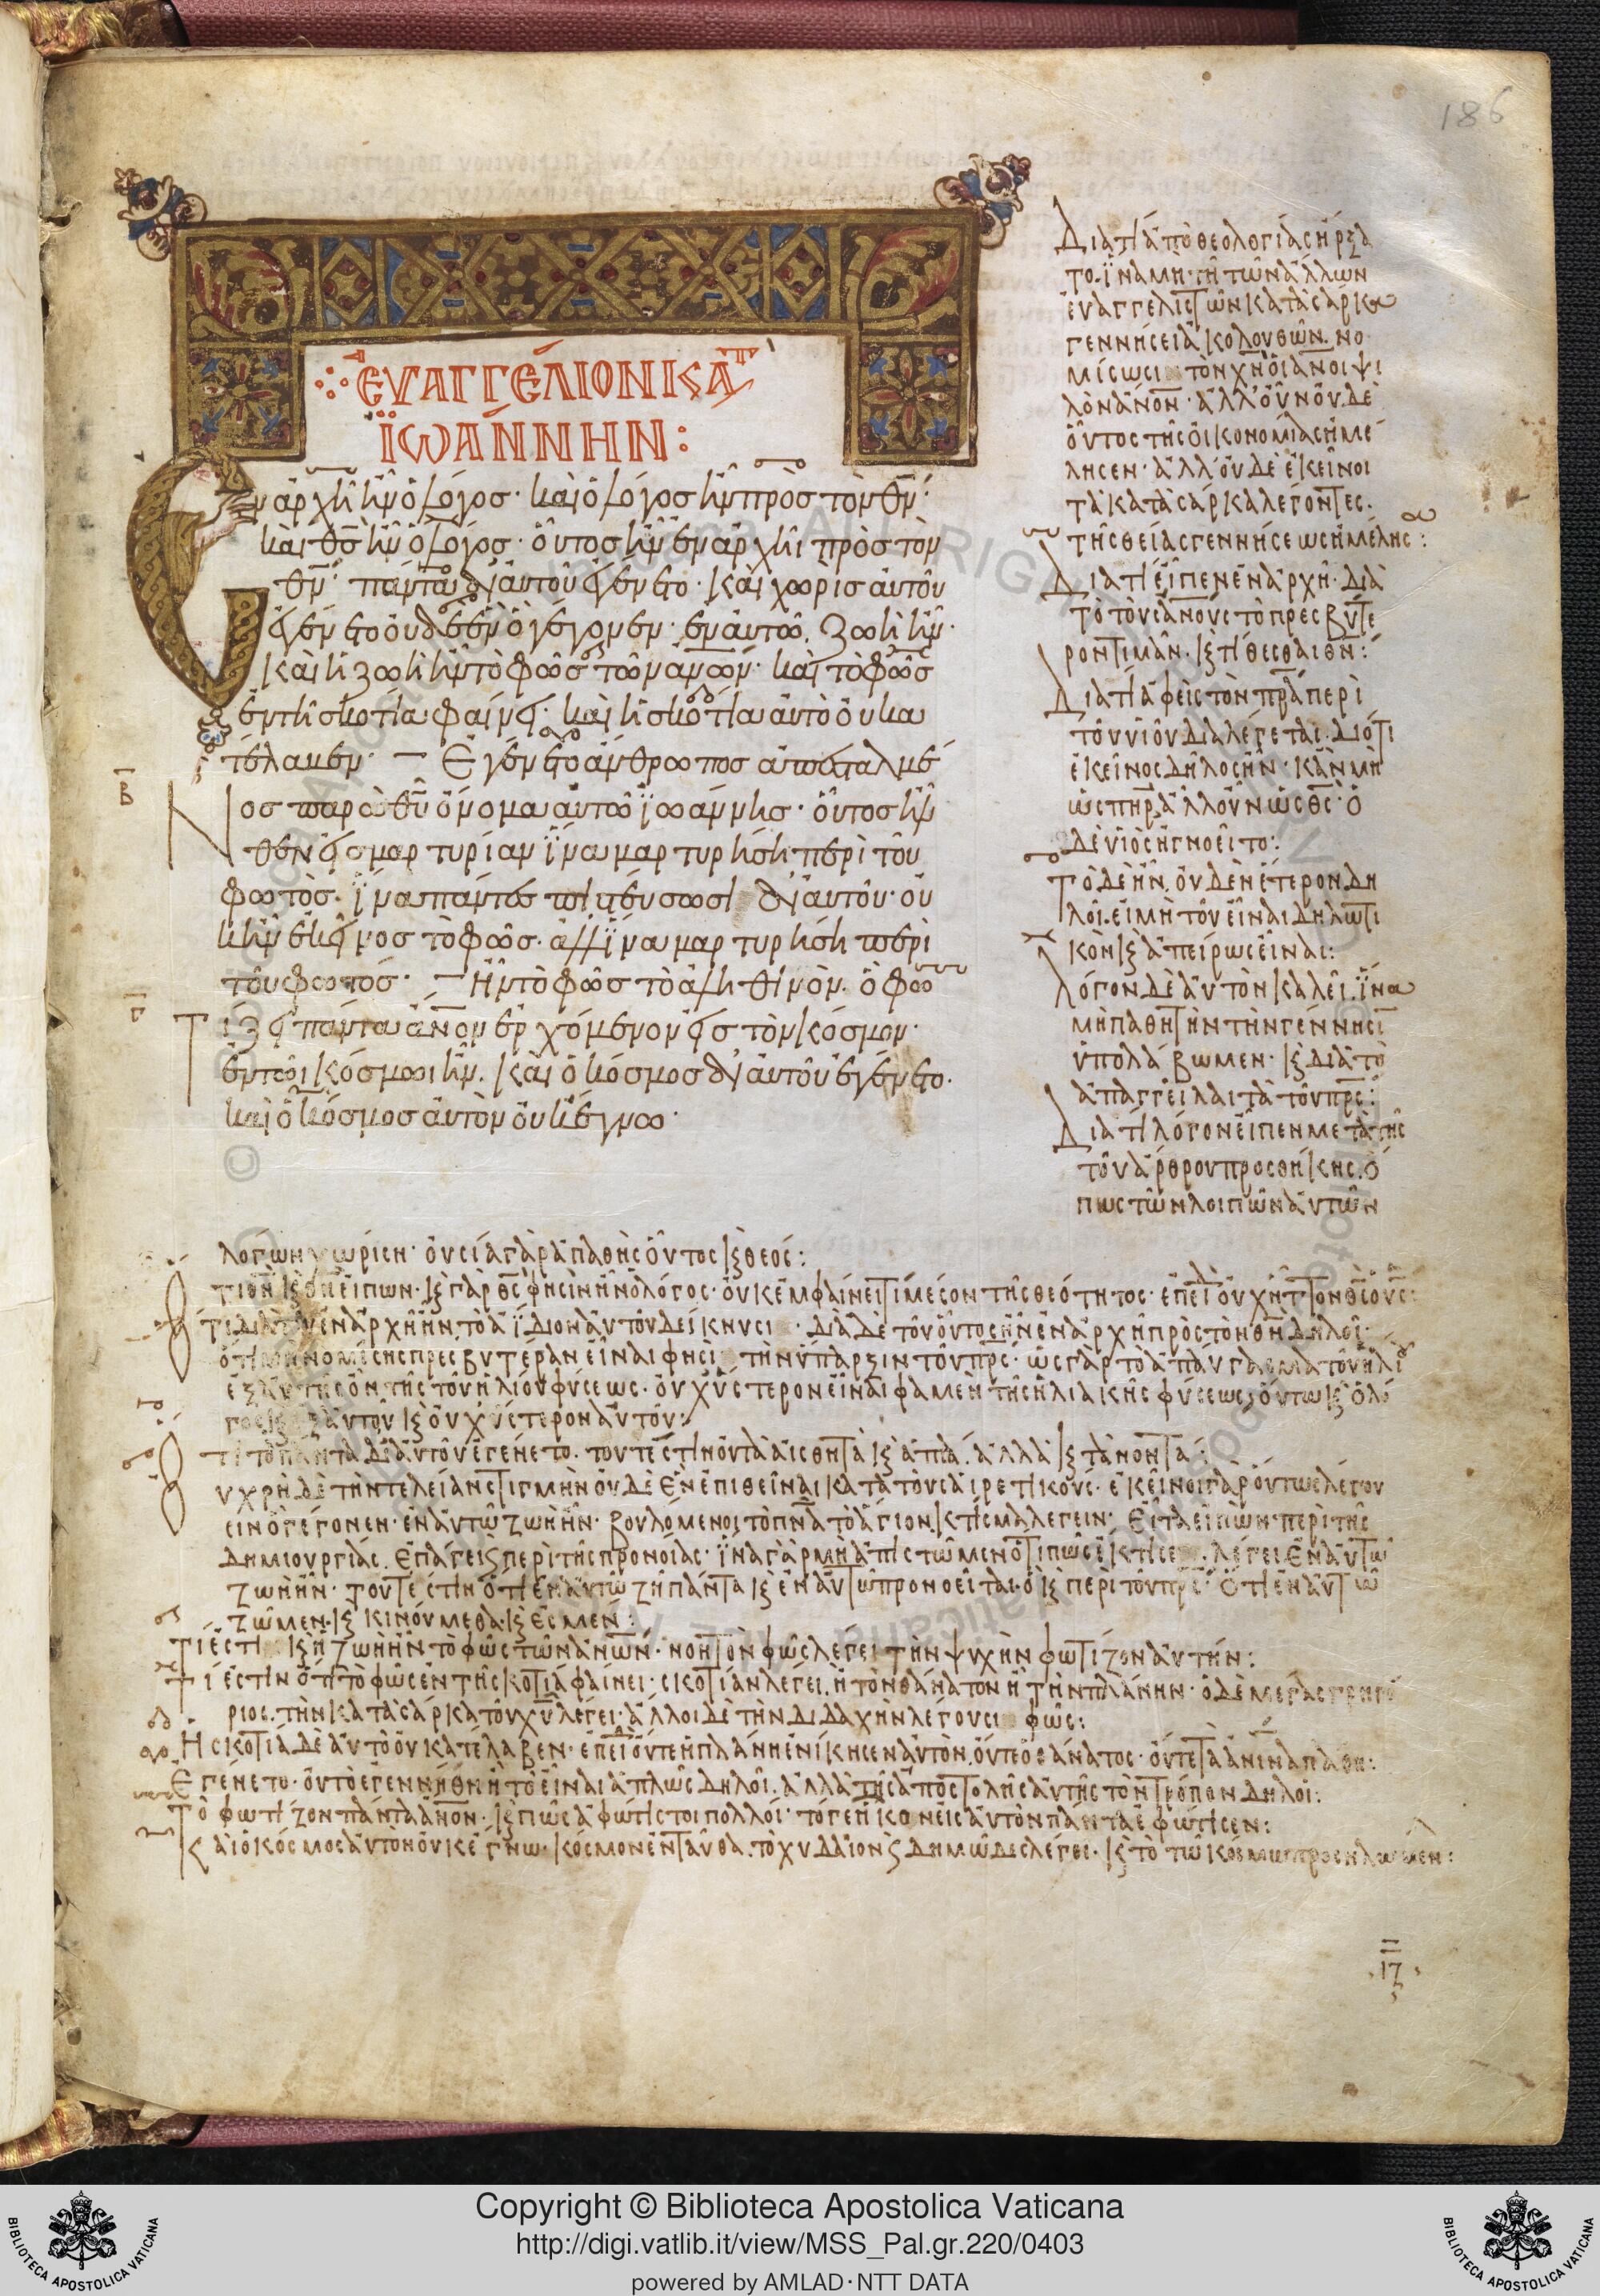 186
ΕΥΑΓΓΕΛΙΟΝ ΚΑΤ
ΪΩΑΝΝΗΝ:
Ἐν ἀρχῆι ἦν ὁ λόγος· καὶ ὁ λόγος ἦν πρὸς τὸν θν̅·
καὶ θς̅ ἦν ὁ λόγος· οὗτος ἦν ἐν ἀρχῆι πρὸς τὸν
θν̅· πάντα δι' αὐτοῦ ἐγένετο· καὶ χωρὶς αὐτοῦ
ἐγένετο οὐδὲ ἓν ὃ γέγονεν· ἐν αὐτῶ ζωὴ ἦν·
καὶ ἡ ζωὴ ἦν τὸ φῶς τῶν ἀνω̅ν· καὶ τὸ φῶς
ἐν τῆ σκοτία φαίνει· καὶ ἡ σκοτία αὐτὸ οὐ κα
τέλαβεν· Ἐγένετο ἄνθρωπος ἀπεσταλμέ
β̅
Νος παρὰ θυ̅ ὄνομα αὐτῶ ϊωάννης· οὗτος ἦλ
θεν εἰς μαρτυρίαν ϊνα μαρτυρήση περὶ τοῦ
φωτὸς· ϊνα πάντες πιστεύσωσι δι' αὐτοῦ· οὐ
κ ἦν ἐκεῖνος τὸ φῶς· ἀλλ' ϊνα μαρτυρήση περὶ
τοῦ φωτός· Ἦν τὸ φῶς τὸ ἀληθινὸν· ὃ φω
γ̅
Τίζει πάντα ἄνο̅ν ἐρχόμενον εἰς τὸν κόσμον·
ἐν τῶι κόσμωι ἦν· καὶ ὁ κόσμος δι' αὐτοῦ ἐγένετο·
καὶ ὁ κόσμος αὐτὸν οὐκ ἔγνω·
Διατί ἀπὸ θεολογίας ἤρξα
το· ϊνα μὴ τῆ τῶν ἄλλων
εὐαγγελιστῶν κατὰ σάρκα
γεννήσει ἀκολουθῶν· νο
μίσωσι τὸν χν̅ οἱ ἄνοι ψι
λὸν ἄνο̅ν· ἀλλ' οὖν οὐδὲ
οὗτος τῆς οἰκονομίας ἠμέ
λησεν· ἀλλ' οὐδὲ ἐκεῖνοι
τὰ κατὰ σάρκα λέγοντες·
τῆς θείας γεννήσεως ἠμέλησ:
Διατί εἶπεν ἐν ἀρχῆ· διὰ
τὸ τοὺς ἀνους τὸ πρεσβύτε
ρον τιμᾶν· κ τίθεσθαι θν̅:
Διατί ἀφεὶς τὸν πρα̅ περὶ
τοῦ υἱοῦ διαλέγεται· διότι
ἐκεῖνος δῆλος ἦν· κἂν μὴ
ὡς πηρ̅ ἀλλ' οὖν ὡς θς̅· ὁ
δὲ υἱὸς ἠγνοεῖτο:
Τὸ δὲ ἦν· οὐδὲν ἕτερον δη
λοῖ· εἰ μὴ τοῦ εἶναι δηλωτι
κὸν κ ἀπείρως εἶναι:
Λόγον δὲ αὐτὸν καλεῖ· ϊνα
μὴ παθητὴν τὴν γέννησι
ὑπολάβωμεν· κ διὰ τὸ
ἀπαγγεῖλαι τὰ τοῦ πρς̅:
Διατί λόγον εἶπεν μετὰ τῆς
τοῦ ἄρθρου προσθήκης· ὅ
πως τῶν λοιπῶν αὐτῶν
λόγων χωρίση· οὐσία γὰρ ἀπαθὴς οὗτος κ θεός:
τί ὁ κ θν̅ εἰπων· κ γὰρ θς̅ φησὶν ἦν ὁ λόγος· οὐκ ἐμφαίνει τί μέσον τῆς θεότητος· ἐπεὶ οὐχ
Τί διὰ τοῦ ἐν ἀρχῆ ἦν, τὸ ἀΐδιον αὐτοῦ δείκνυσι· διὰ δὲ τοῦ οὗτος ἦν ἐν ἀρχῆ πρὸς τὸν θν̅ δηλοῖ·
ὅτι μὴ νομίσης πρεσβυτέραν εἶναι φησὶ τὴν ὕπαρξιν τοῦ πρς̅· ὡς γὰρ τὸ ἀπαύγασμα τοῦ ἡλί
ἐξ αὐτῆς ὂν τῆς τοῦ ἡλίου φύσεως· οὐχ ὕστερον εἶναι φαμὲν τῆς ἡλιακῆς φύσεως, οὕτω κ ὁ λό
γος κ ἐξ αὐτοῦ κ οὐχ ὕστερον αὐτοῦ:
τί τὸ πάντα δι' αὐτοῦ ἐγένετο· τουτέστιν οὐ τὰ αἰσθητὰ κ ἁπλᾶ· ἀλλὰ κ τὰ νοητά:
Οὐ χρὴ δὲ τὴν τελείαν στιγμὴν οὐδὲ ἓν ἐπιθεῖναι κατὰ τοὺς αἱρετικούς· ἐκεῖνοι γὰρ οὕτως λέγου
σιν ὃ γέγονεν· ἐν αὐτῶ ζωὴ ἦν· βουλόμενοι τὸ πνα̅ τὸ ἅγιον, κτίσμα λέγειν· Εἶτα εἰπὼν περὶ τῆς
δημιουργίας, ἐπάγει κ περὶ τῆς προνοίας· ϊνα γὰρ μὴ ἀπιστῶμεν ὅτι πῶς ἔκτισε λέγει ἐν αὐτῶ
ζωὴ ἦν· τουτέστιν ὅτι ἐν αὐτῶ ζῆ πάντα κ ἐν αὐτῶ προνοεῖται· ὃ κ περὶ τοῦ πρς̅· ὅτι ἐν αὐτῶ
ζῶμεν· κ κινούμεθα· κ ἐσμέν:
Τί ἐστι κ ἡ ζωὴ ἦν τὸ φῶς τῶν ἀνω̅ν· νοητὸν φῶς λέγει τὴν ψυχὴν φωτίζον αὐτήν:
Τί ἐστιν ὅτι τὸ φῶς ἐν τῆ σκοτία φαίνει· σκοτίαν λέγει, ἢ τὸν θάνατον ἢ τὴν πλάνην· ὁ δὲ μέγας γρηγό
ριος, τὴν κατὰ σάρκα τοῦ χυ̅ λέγει· ἄλλοι δὲ τὴν διδαχὴν λέγουσι φῶς:
Ἡ σκοτία δὲ αὐτὸ οὐ κατέλαβεν· ἐπεὶ οὔτε ἡ πλάνη ἐνίκησεν αὐτὸν, οὔτε ὁ θάνατος·
Ἐγένετο· οὐ τὸ ἐγεννήθη ἢ τὸ εἶναι ἁπλῶς δηλοῖ, ἀλλὰ τῆς ἀποστολῆς αὐτῆς τὸν τρόπον δηλοῖ:
Τὸ φωτίζον πάντα ἄνο̅ν· κ πῶς ἀφώτιστοι πολλοί· τό γε ἧκον εἰς αὐτὸν πάντα ἐφώτισεν:
Καὶ ὁ κόσμος αὐτὸν οὐκ ἔγνω· κόσμον ἐνταῦθα, τὸ χυδαῖον κ δημῶδες λέγει· κ τὸ τῶ κόσμω προσηλωμέν:
ιζ
Copyright © Biblioteca Apostolica Vaticana
http://digi.vatlib.it/view/MSS_Pal.gr.220/0403
powered by AMLAD·NTT DATA
BIBLIOTECA APOSTOLICA VATICANA
BIBLIOTECA APOSTOLICA VATICANA